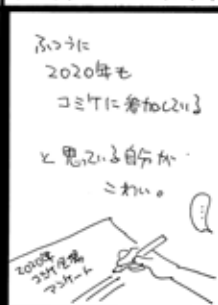 ふつうに
2020年も
コミケに参加している
と思っている自分が
こわい。
2020年
コミケ会場
アンケート